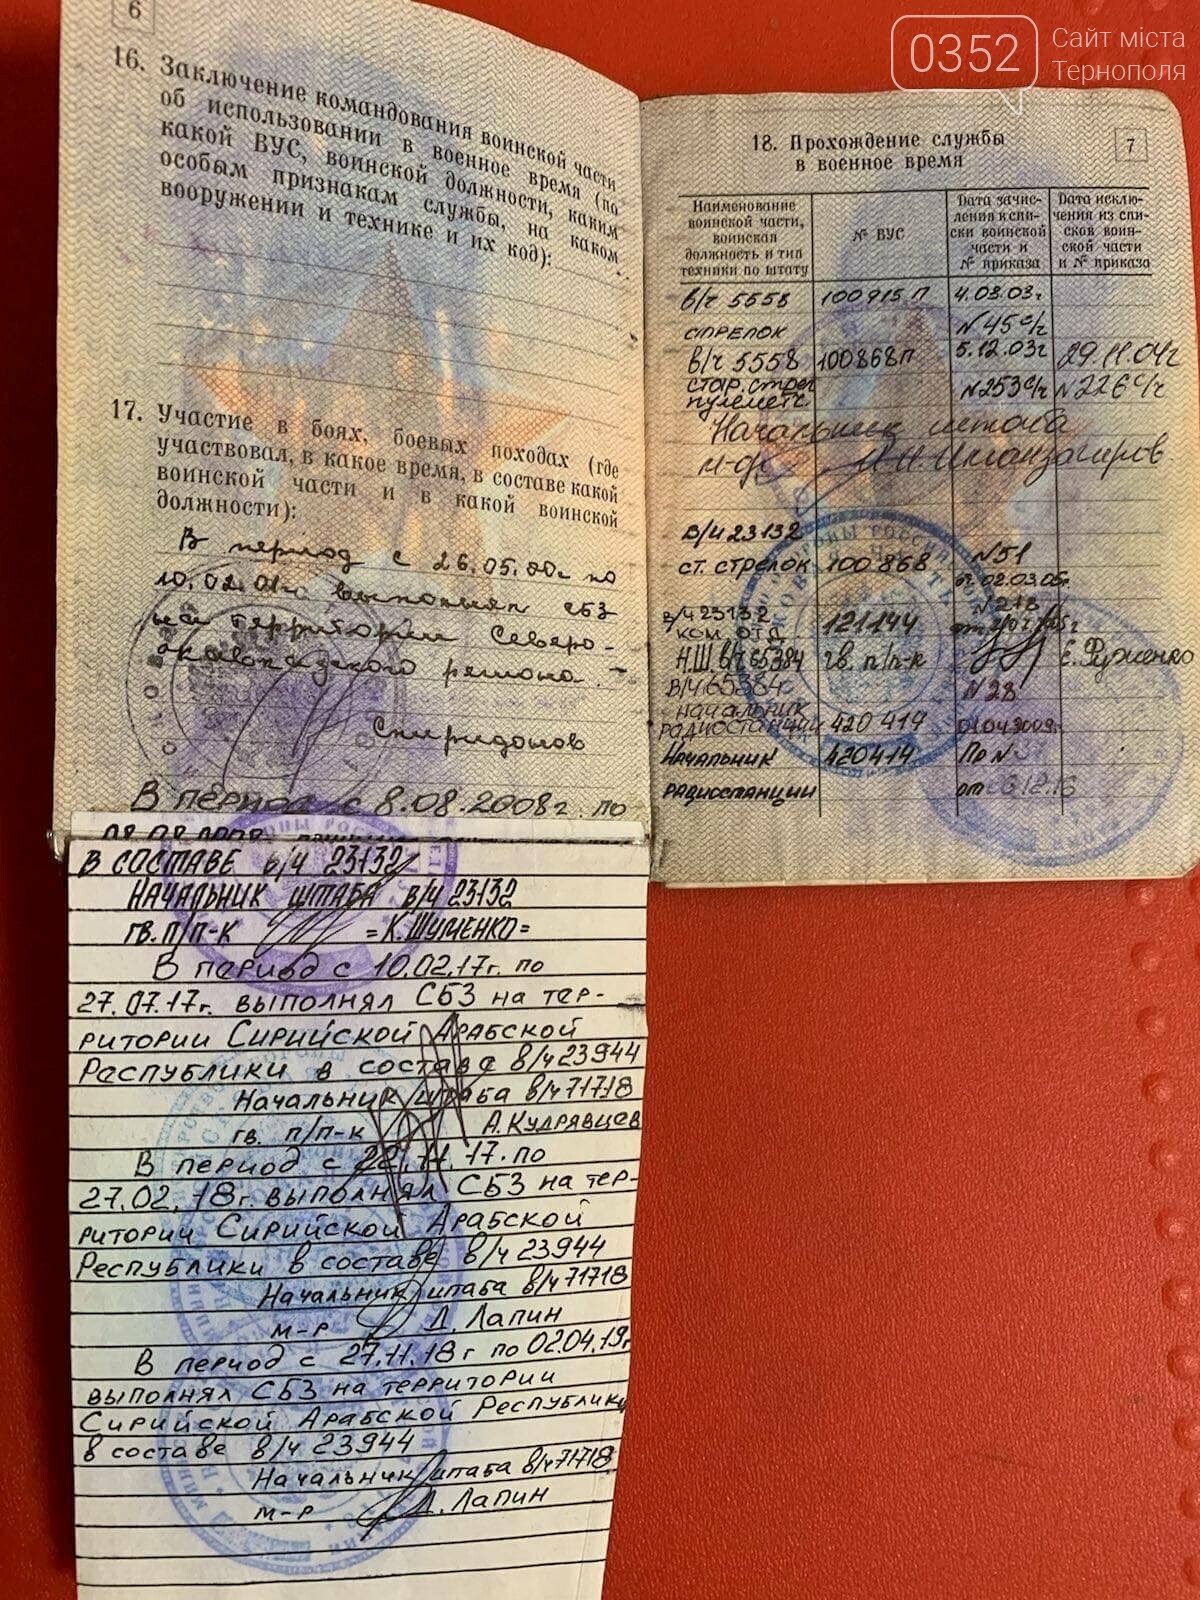 0352
Сайт міста
Тернополя
6
16. Заключение командования воинской части
об использовании в военное время (по
какой ВУС, воинской должности, каким
особым признакам службы, на каком
вооружении и технике и их код):
17. Участие в боях, боевых походах (где
участвовал, в какое время, в составе какой
воинской части и в какой воинской
должности):
В период с 26.05.00г по
10.02.01г выполнял СБЗ
на территории Северо-
кавказского региона.
Спиридонов
В период с 8.08.2008г. по
В СОСТАВЕ В/Ч 23132
НАЧАЛЬНИК ШТАБА В/Ч 23132
ГВ. П/П-К =К.ШУМЕНКО=
В период с 10.02.17г. по
27.07.17г. выполнял СБЗ на тер-
ритории Сирийской Арабской
Республики в составе в/ч 23944
Начальник штаба в/ч 71718
гв. п/п-к А.Кудрявцев
В период с 22.11.17. по
27.02.18г. выполнял СБЗ на тер-
ритории Сирийской Арабской
Республики в составе в/ч 23944
Начальник штаба в/ч 71718
м-р Д. Лапин
В период с 27.11.18г по 02.04.19г
выполнял СБЗ на территории
Сирийской Арабской Республики
в составе в/ч 23944
Начальник штаба в/ч 71718
м-р Д. Лапин
7
18. Прохождение службы
в военное время
Наименование воинской части, воинская должность и тип техники по штату
№ ВУС
Дата зачис-ления в спи-ски воинской части и № приказа
Дата исклю-чения из спи-сков воин-ской части и № приказа
в/ч 5558 100915 П 4.03.03г
стрелок №45 с/ч
в/ч 5558 100868П 5.12.03г 29.11.04г
стар. стрел №253с/ч №226с/ч
пулеметч.
Начальник штаба
м-р
В/Ч 23132
СТ. СТРЕЛОК 100868 №51
от 02.03.05г.
В/Ч 23132 №218
КОМ. ОТД. 121144
Н.Ш. В/Ч 65384 гв. п/п-к Е. Руженко
В/Ч 65384 №28
начальник
радиостанции 420414 01.04.2009г.
Начальник 420414 Пр №
радиостанции от